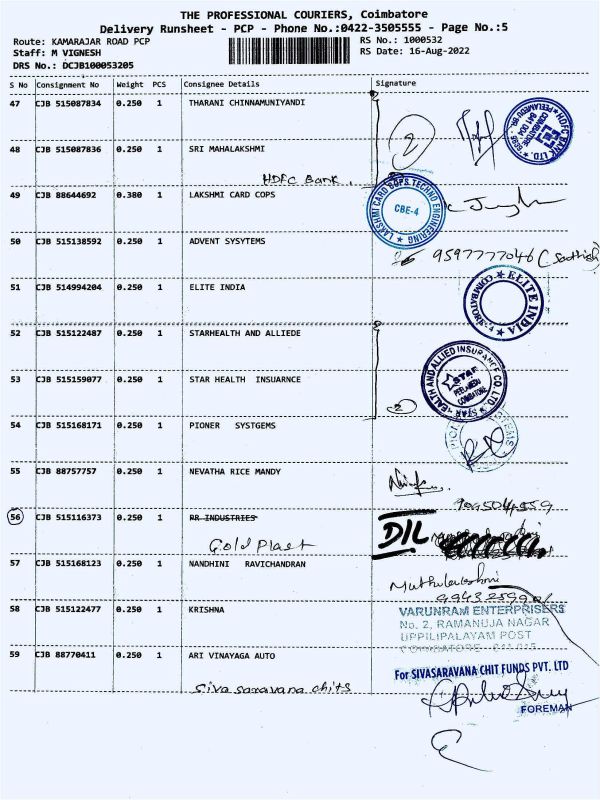 THE PROFESSIONAL COURIERS, Coimbatore
Delivery Runsheet - PCP - Phone No.:0422-3505555 - Page No.:5
Route: KAMARAJAR ROAD PCP RS No.: 1000532
Staff: M VIGNESH RS Date: 16-Aug-2022
DRS No.: DCJB100053205
S No Consignment No Weight PCS Consignee Details Signature
47 CJB 515087834 0.250 1 THARANI CHINNAMUNIYANDI
2
HDFC BANK LTD.
48 CJB 515087836 0.250 1 SRI MAHALAKSHMI
HDFC Bank.
49 CJB 88644692 0.380 1 LAKSHMI CARD COPS
LAKSHMI CARD COPS TECHNO ENGINEERING
CBE-4
50 CJB 515138592 0.250 1 ADVENT SYSYTEMS
9597777046
51 CJB 514994204 0.250 1 ELITE INDIA
ELITE INDIA
COIMBATORE-4
52 CJB 515122487 0.250 1 STARHEALTH AND ALLIEDE
53 CJB 515159077 0.250 1 STAR HEALTH INSUARNCE
STAR HEALTH AND ALLIED INSURANCE CO LTD.
STAR
PEELAMEDU
COIMBATORE
2
54 CJB 515168171 0.250 1 PIONER SYSTGEMS
55 CJB 88757757 0.250 1 NEVATHA RICE MANDY
56 CJB 515116373 0.250 1 RR INDUSTRIES
Gold Plast
DIL
57 CJB 515168123 0.250 1 NANDHINI RAVICHANDRAN
Muthulakshmi
58 CJB 515122477 0.250 1 KRISHNA
VARUNRAM ENTERPRISERS
No. 2, RAMANUJA NAGAR
UPPILIPALAYAM POST
COIMBATORE - 641 015
59 CJB 88770411 0.250 1 ARI VINAYAGA AUTO
Siva saravana chits
For SIVASARAVANA CHIT FUNDS PVT. LTD
FOREMAN